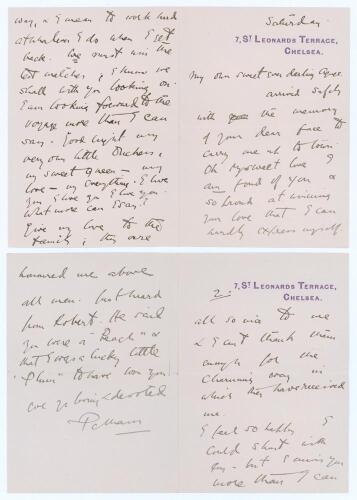 way, & I mean to work hard
at whatever I do when I get
back. We must win the
test matches, & I know we
shall with you looking on.
I am looking forward to the
voyage more than I can
say. Good night my
very own little Duchess,
my sweet Queen – my
love – my everything. I love
you I love you I love you.
What more can I say?
Give my love to the
family, they were
Saturday.
7, ST LEONARDS TERRACE,
CHELSEA.
My own sweet own darling
arrived safely
with the memory
of your dear face to
carry me up to town.
Oh my sweet love I
am fond of you &
so proud at winning
your love that I can
hardly express myself.
honoured me above
all men. Just heard
from Robert. He said
you were a "Peach" &
that I was a lucky little
"Plum" to have won you
loving & devoted
Pelham
2.
7, ST LEONARDS TERRACE,
CHELSEA.
all so nice to me
& I can't thank them
enough for the
charming way in
which they have received
me.
I feel so happy I
could shout with
joy – but I miss you
more than I can